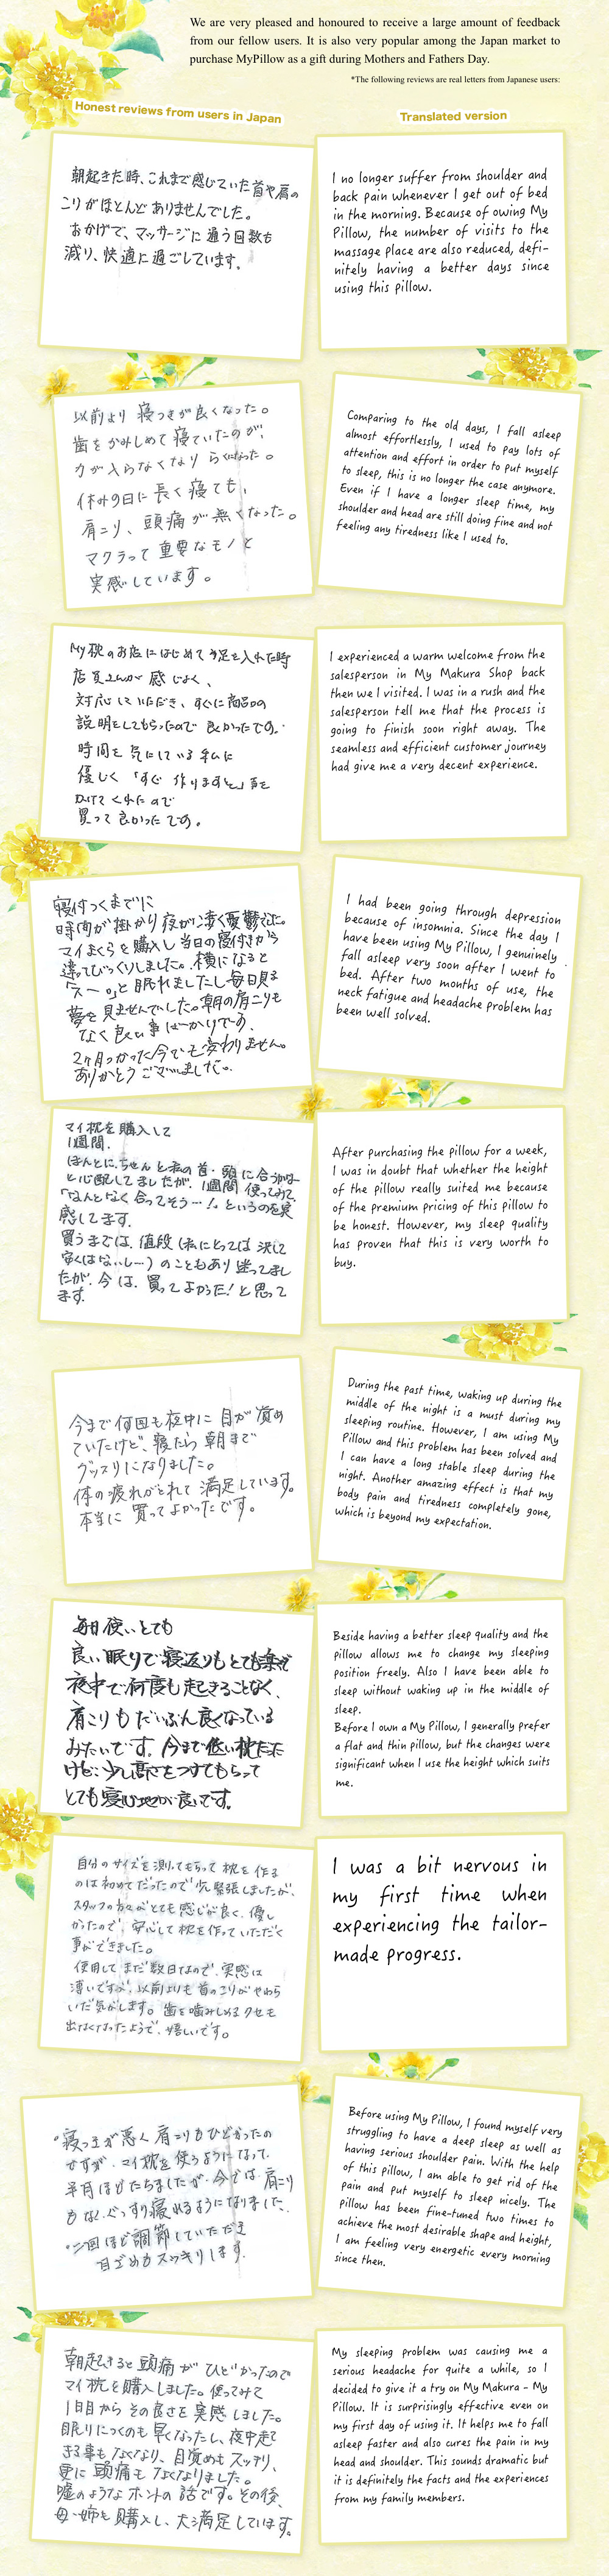 We are very pleased and honoured to receive a large amount of feedback
from our fellow users. It is also very popular among the Japan market to
purchase MyPillow as a gift during Mothers and Fathers Day.
*The following reviews are real letters from Japanese users:
Honest reviews from users in Japan
Translated version
朝起きた時、これまで感じていた首や肩の
こりがほとんどありませんでした。
おかげで、マッサージに通う回数も
減り、快適に過ごしています。
I no longer suffer from shoulder and
back pain whenever I get out of bed
in the morning. Because of owing My
Pillow, the number of visits to the
massage place are also reduced, defi-
nitely having a better days since
using this pillow.
以前より 寝つきが良くなった。
歯をかみしめて寝ていたのが、
力が入らなくなり らくになった。
休みの日に長く寝ても、
肩こり、頭痛が無くなった。
マクラって重要なモノと
実感しています。
Comparing to the old days, I fall asleep
almost effortlessly, I used to pay lots of
attention and effort in order to put myself
to sleep, this is no longer the case anymore.
Even if I have a longer sleep time, my
shoulder and head are still doing fine and not
feeling any tiredness like I used to.
My枕のお店にはじめて足を入れた時
店員さんが感じよく、
対応していただき、すぐに商品の
説明をしてもらったので 良かったです。
時間を気にしている私に
優しく「すぐ作りますと」声を
かけてくれたので
買って良かったです。
I experienced a warm welcome from the
salesperson in My Makura Shop back
then we I visited. I was in a rush and the
salesperson tell me that the process is
going to finish soon right away. The
seamless and efficient customer journey
had give me a very decent experience.
寝付つくまでに
時間が掛かり夜が凄く憂鬱でした。
マイまくらを購入し当日の寝付きから
違ってびっくりしました。横になると
「スー。」と眠れましたし毎日見る
夢を見ませんでした。朝の肩こりも
なく良い事ばかりです。
2ヶ月つかった今でも変わりません。
ありがとうございました。
I had been going through depression
because of insomnia. Since the day I
have been using My Pillow, I genuinely
fall asleep very soon after I went to
bed. After two months of use, the
neck fatigue and headache problem has
been well solved.
マイ枕を購入して
1週間。
ほんとに、ちゃんと私の首・頭に合うかなー
と心配してましたが、1週間使ってみて、
「なんとなく合ってそう…!」というのを実
感してます。
買うまでは、値段(私にとっては決して
安くはないし…)のこともあり迷ってまし
たが、今は、買ってよかった!と思って
ます。
After purchasing the pillow for a week,
I was in doubt that whether the height
of the pillow really suited me because
of the premium pricing of this pillow to
be honest. However, my sleep quality
has proven that this is very worth to
buy.
今まで何回も夜中に目が覚め
ていたけど、寝たら朝まで
グッスリになりました。
体の疲れがとれて満足しています。
本当に買ってよかったです。
During the past time, waking up during the
middle of the night is a must during my
sleeping routine. However, I am using My
Pillow and this problem has been solved and
I can have a long stable sleep during the
night. Another amazing effect is that my
body pain and tiredness completely gone,
which is beyond my expectation.
毎日使いとても
良い眠りで寝返りもとても楽ぜ
夜中で何度も起きることなく、
肩こりもだいぶん良くなっている
みたいです。今まで低い枕だった
けど、少し高さをつけてもらって
とても寝心地が良いです。
Beside having a better sleep quality and the
pillow allows me to change my sleeping
position freely. Also I have been able to
sleep without waking up in the middle of
sleep.
Before I own a My Pillow, I generally prefer
a flat and thin pillow, but the changes were
significant when I use the height which suits
me.
自分のサイズを測ってもらって枕を作る
のは初めてだったので少し緊張しましたが、
スタッフの方々がとても感じが良く、優し
かったので、安心して枕を作っていただく
事ができました。
使用してまだ数日なので、実感は
薄いですが、以前よりも首のこりがやわら
いだ気がします。歯を噛みしめるクセも
出なくなったようで、嬉しいです。
I was a bit nervous in
my first time when
experiencing the tailor-
made progress.
・寝つきが悪く肩こりもひどかったの
ですが、マイ枕を使うようになって、
半月ほどたちましたが、今では肩こり
もなくぐっすり寝れるようになりました。
・二回ほど調節していただき
目ざめもスッキリします。
Before using My Pillow, I found myself very
struggling to have a deep sleep as well as
having serious shoulder pain. With the help
of this pillow, I am able to get rid of the
pain and put myself to sleep nicely. The
pillow has been fine-tuned two times to
achieve the most desirable shape and height,
I am feeling very energetic every morning
since then.
朝起きると頭痛がひどかったので
マイ枕を購入しました。使ってみて
1日目からその良さを実感しました。
眠りにつくのも早くなったし、夜中起て
きる事もなくなり、目覚めもスッキリ、
更に頭痛もなくなりました。
嘘のようなホントの話です。その後、
母・姉も購入し、大満足しています。
My sleeping problem was causing me a
serious headache for quite a while, so I
decided to give it a try on My Makura - My
Pillow. It is surprisingly effective even on
my first day of using it. It helps me to fall
asleep faster and also cures the pain in my
head and shoulder. This sounds dramatic but
it is definitely the facts and the experiences
from my family members.